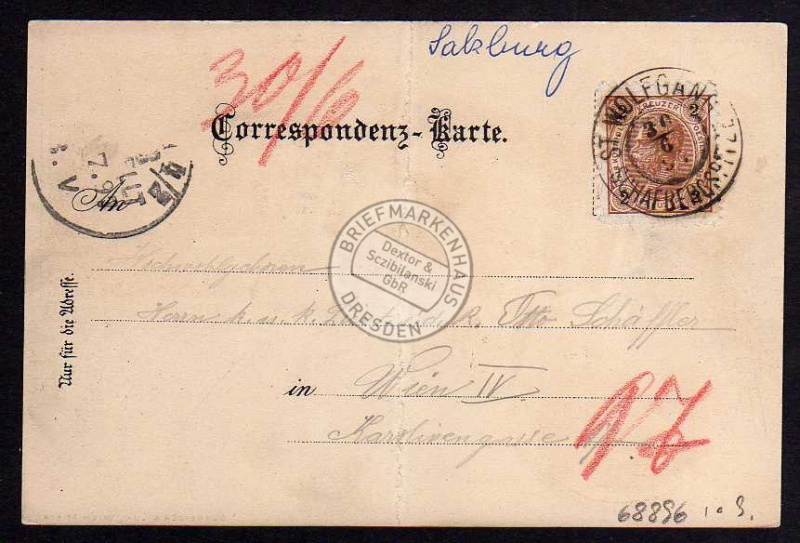 Salzburg
30/6
Correspondenz-Karte.
ST. WOLFGANG
SCHAFBERG
KREUZER
2
2
2
30
6
An
7. 9
8. V
BRIEFMARKENHAUS
Dextor &
Sczibilanski
GbR
DRESDEN
Hochwohlgeboren
Herrn k. u. k. Otto Schäffler
in Wien IV.
Karolinengasse
Nur für die Adresse.
97
68896